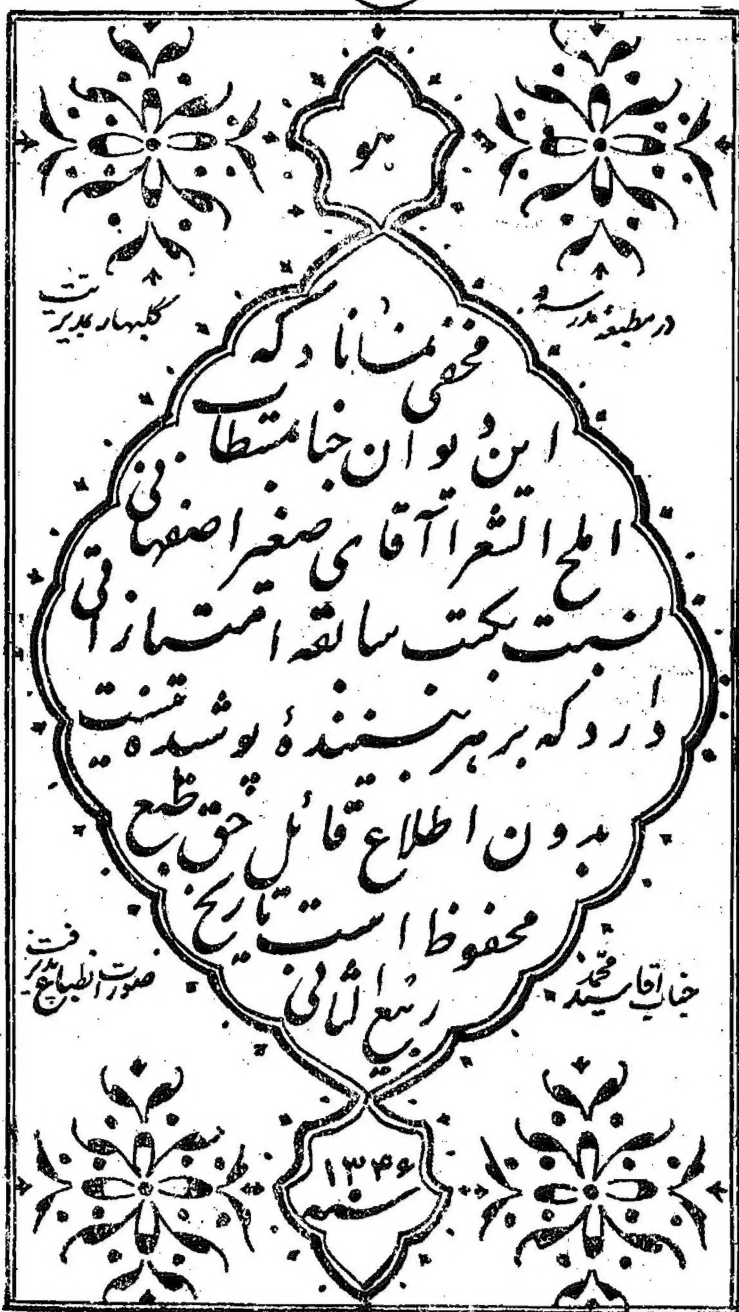 هو
در مطبعهٔ مدرسهٔ
گلبهار بمدیریت
مخفی نماناد که
این دیوان جناب مستطاب
املح الشعرا آقای صغیر اصفهانی
نسبت بکتب سابقه امتیازاتی
دارد که بر هر بینندهٔ پوشیده نیست
بدون اطلاع قائل حق طبع
محفوظ است تاریخ
ربیع الثانی
جناب آقا سید محمد
صورت انطباع پذیرفت
سنه ۱۳۴۶